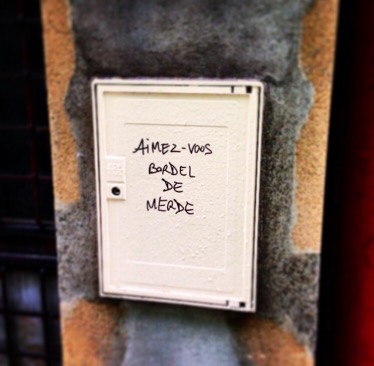 AiMEZ-VOUS
BORDEL
DE
MERDE